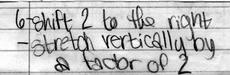 6-shift 2 to the right
-stretch vertically by
a factor of 2